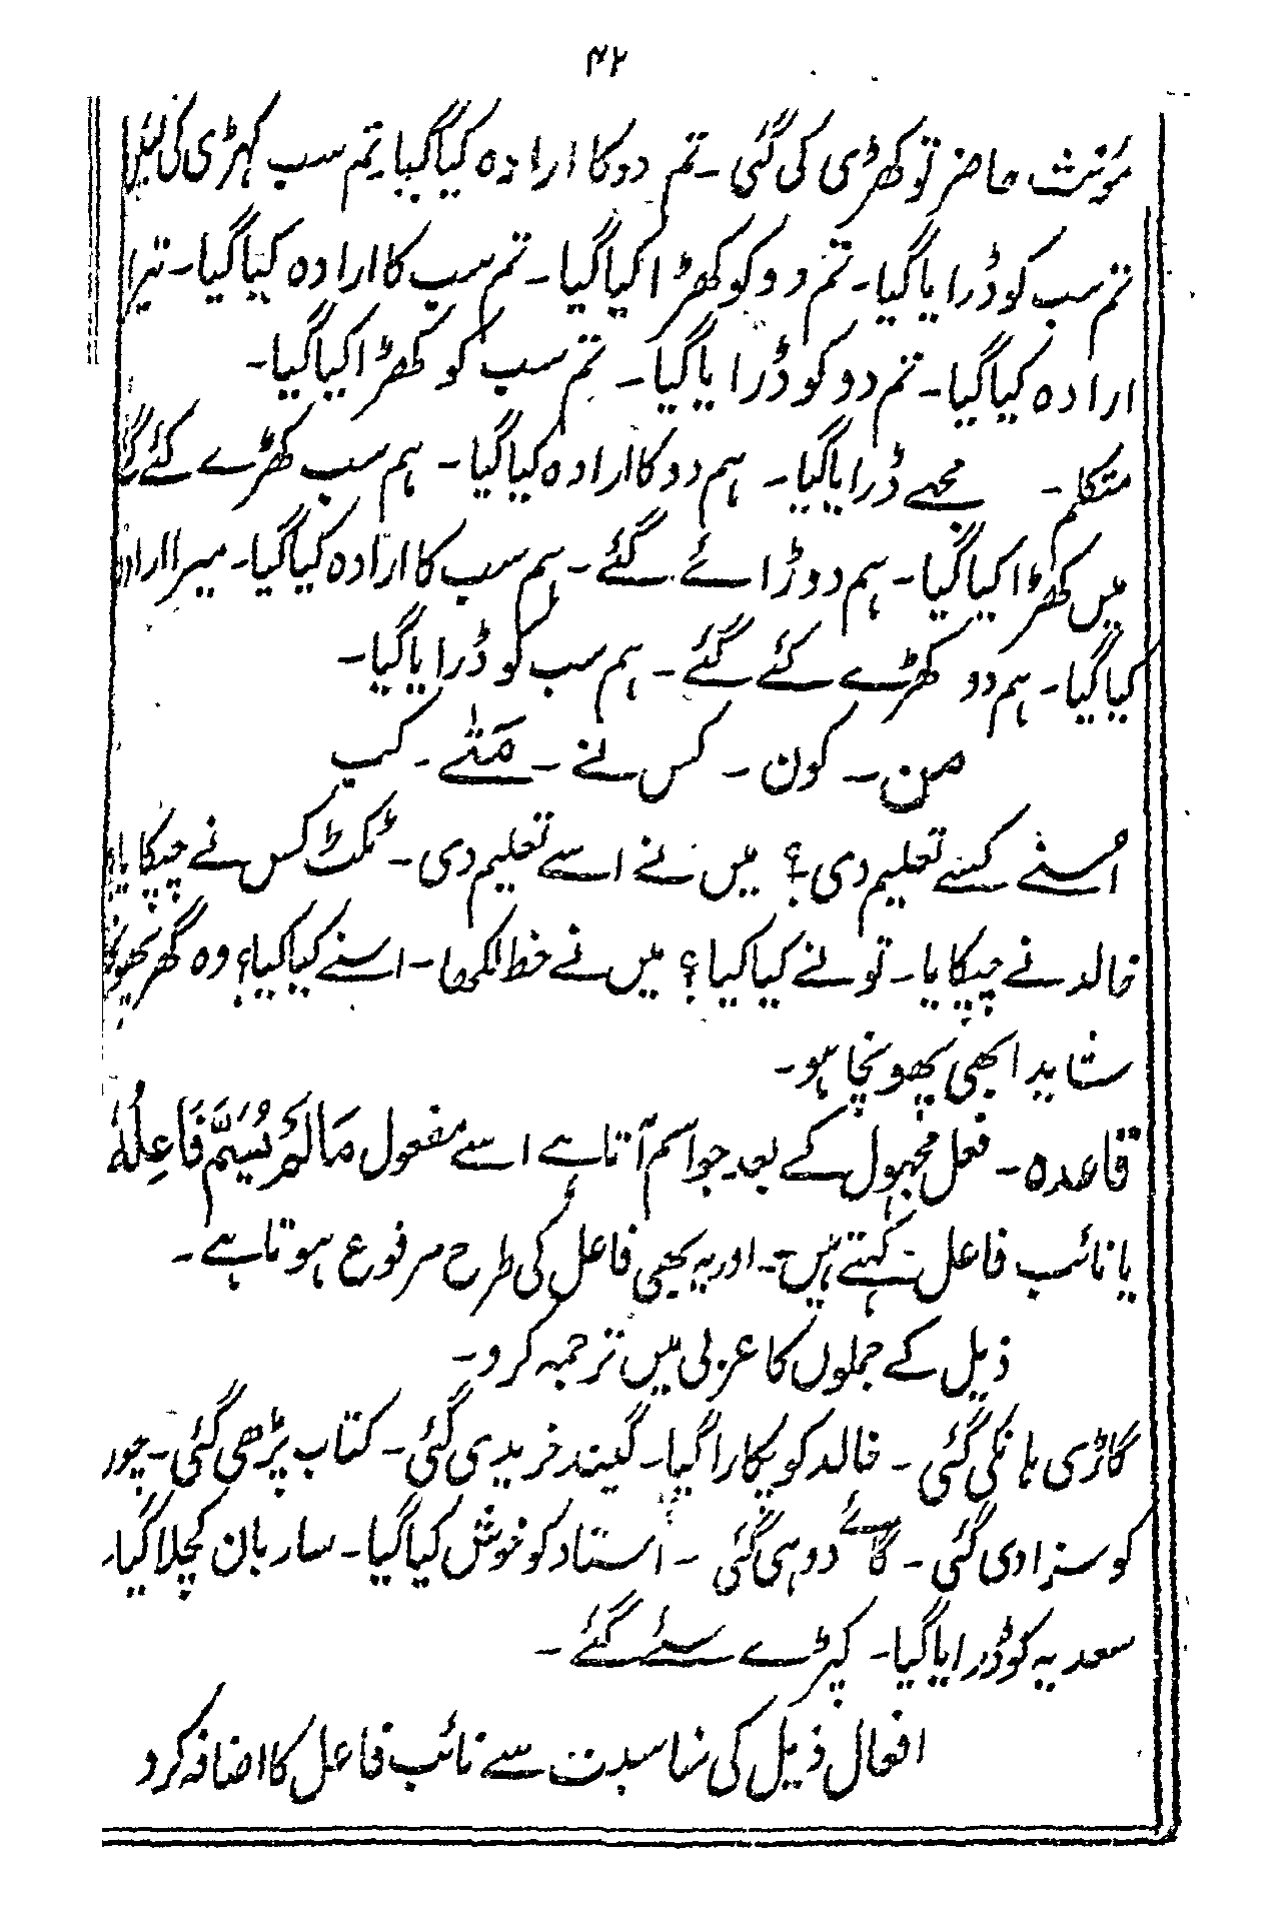 ۴۲
مؤنث حاضر تو کھڑی کی گئی ۔ تم دو کا ارادہ کیا گیا۔ تم سب کہڑی کی گئیں
تم سب کو ڈرایا گیا۔ تم دو کو کھڑا کیا گیا ۔ تم سب کا ارادہ کیا گیا ۔ تیرا
ارادہ کیا گیا ۔ تم دو کو ڈرایا گیا ۔ تم سب کو کھڑا کیا گیا ۔
متکلم ۔ مجھے ڈرایا گیا ۔ ہم دو کا ارادہ کیا گیا ۔ ہم سب کھڑے کئے گئے
میں کھڑا کیا گیا ۔ ہم دو ڈرائے گئے ۔ ہم سب کا ارادہ کیا گیا ۔ میرا ارادہ
کیا گیا ۔ ہم دو کھڑے کئے گئے ۔ ہم سب کو ڈرایا گیا ۔
من ۔ کون ۔ کس نے ۔ مَتٰے ۔ کب
اُسنے کسنے تعلیم دی ؟ میں نے اسے تعلیم دی ۔ ٹکٹ کس نے چپکایا
خالد نے چپکایا ۔ تو نے کیا کیا ؟ میں نے خط لکھا ۔ اسنے کیا کیا ؟ وہ گھر
شاید ابھی پھونچا ہو ۔
قاعدہ ۔ فعل مجہول کے بعد جو اسم آتا ہے اسے مفعول مَالَمْ یُسَمَّ فَاعِلُہٗ
یا نائب فاعل کہتے ہیں ۔ اور یہ بھی فاعل کی طرح مرفوع ہوتا ہے ۔
ذیل کے جملوں کا عربی میں ترجمہ کرو ۔
گاڑی ہانکی گئی ۔ خالد کو پکارا گیا ۔ گیند خریدی گئی ۔ کتاب پڑھی گئی ۔ چور
کو سزا دی گئی ۔ گائے دوہی گئی ۔ استاد کو خوش کیا گیا ۔ ساربان کچلا گیا ۔
سعدیہ کو ڈرایا گیا ۔ کپڑے سئے گئے ۔
افعال ذیل کی مناسبت سے نائب فاعل کا اضافہ کرو